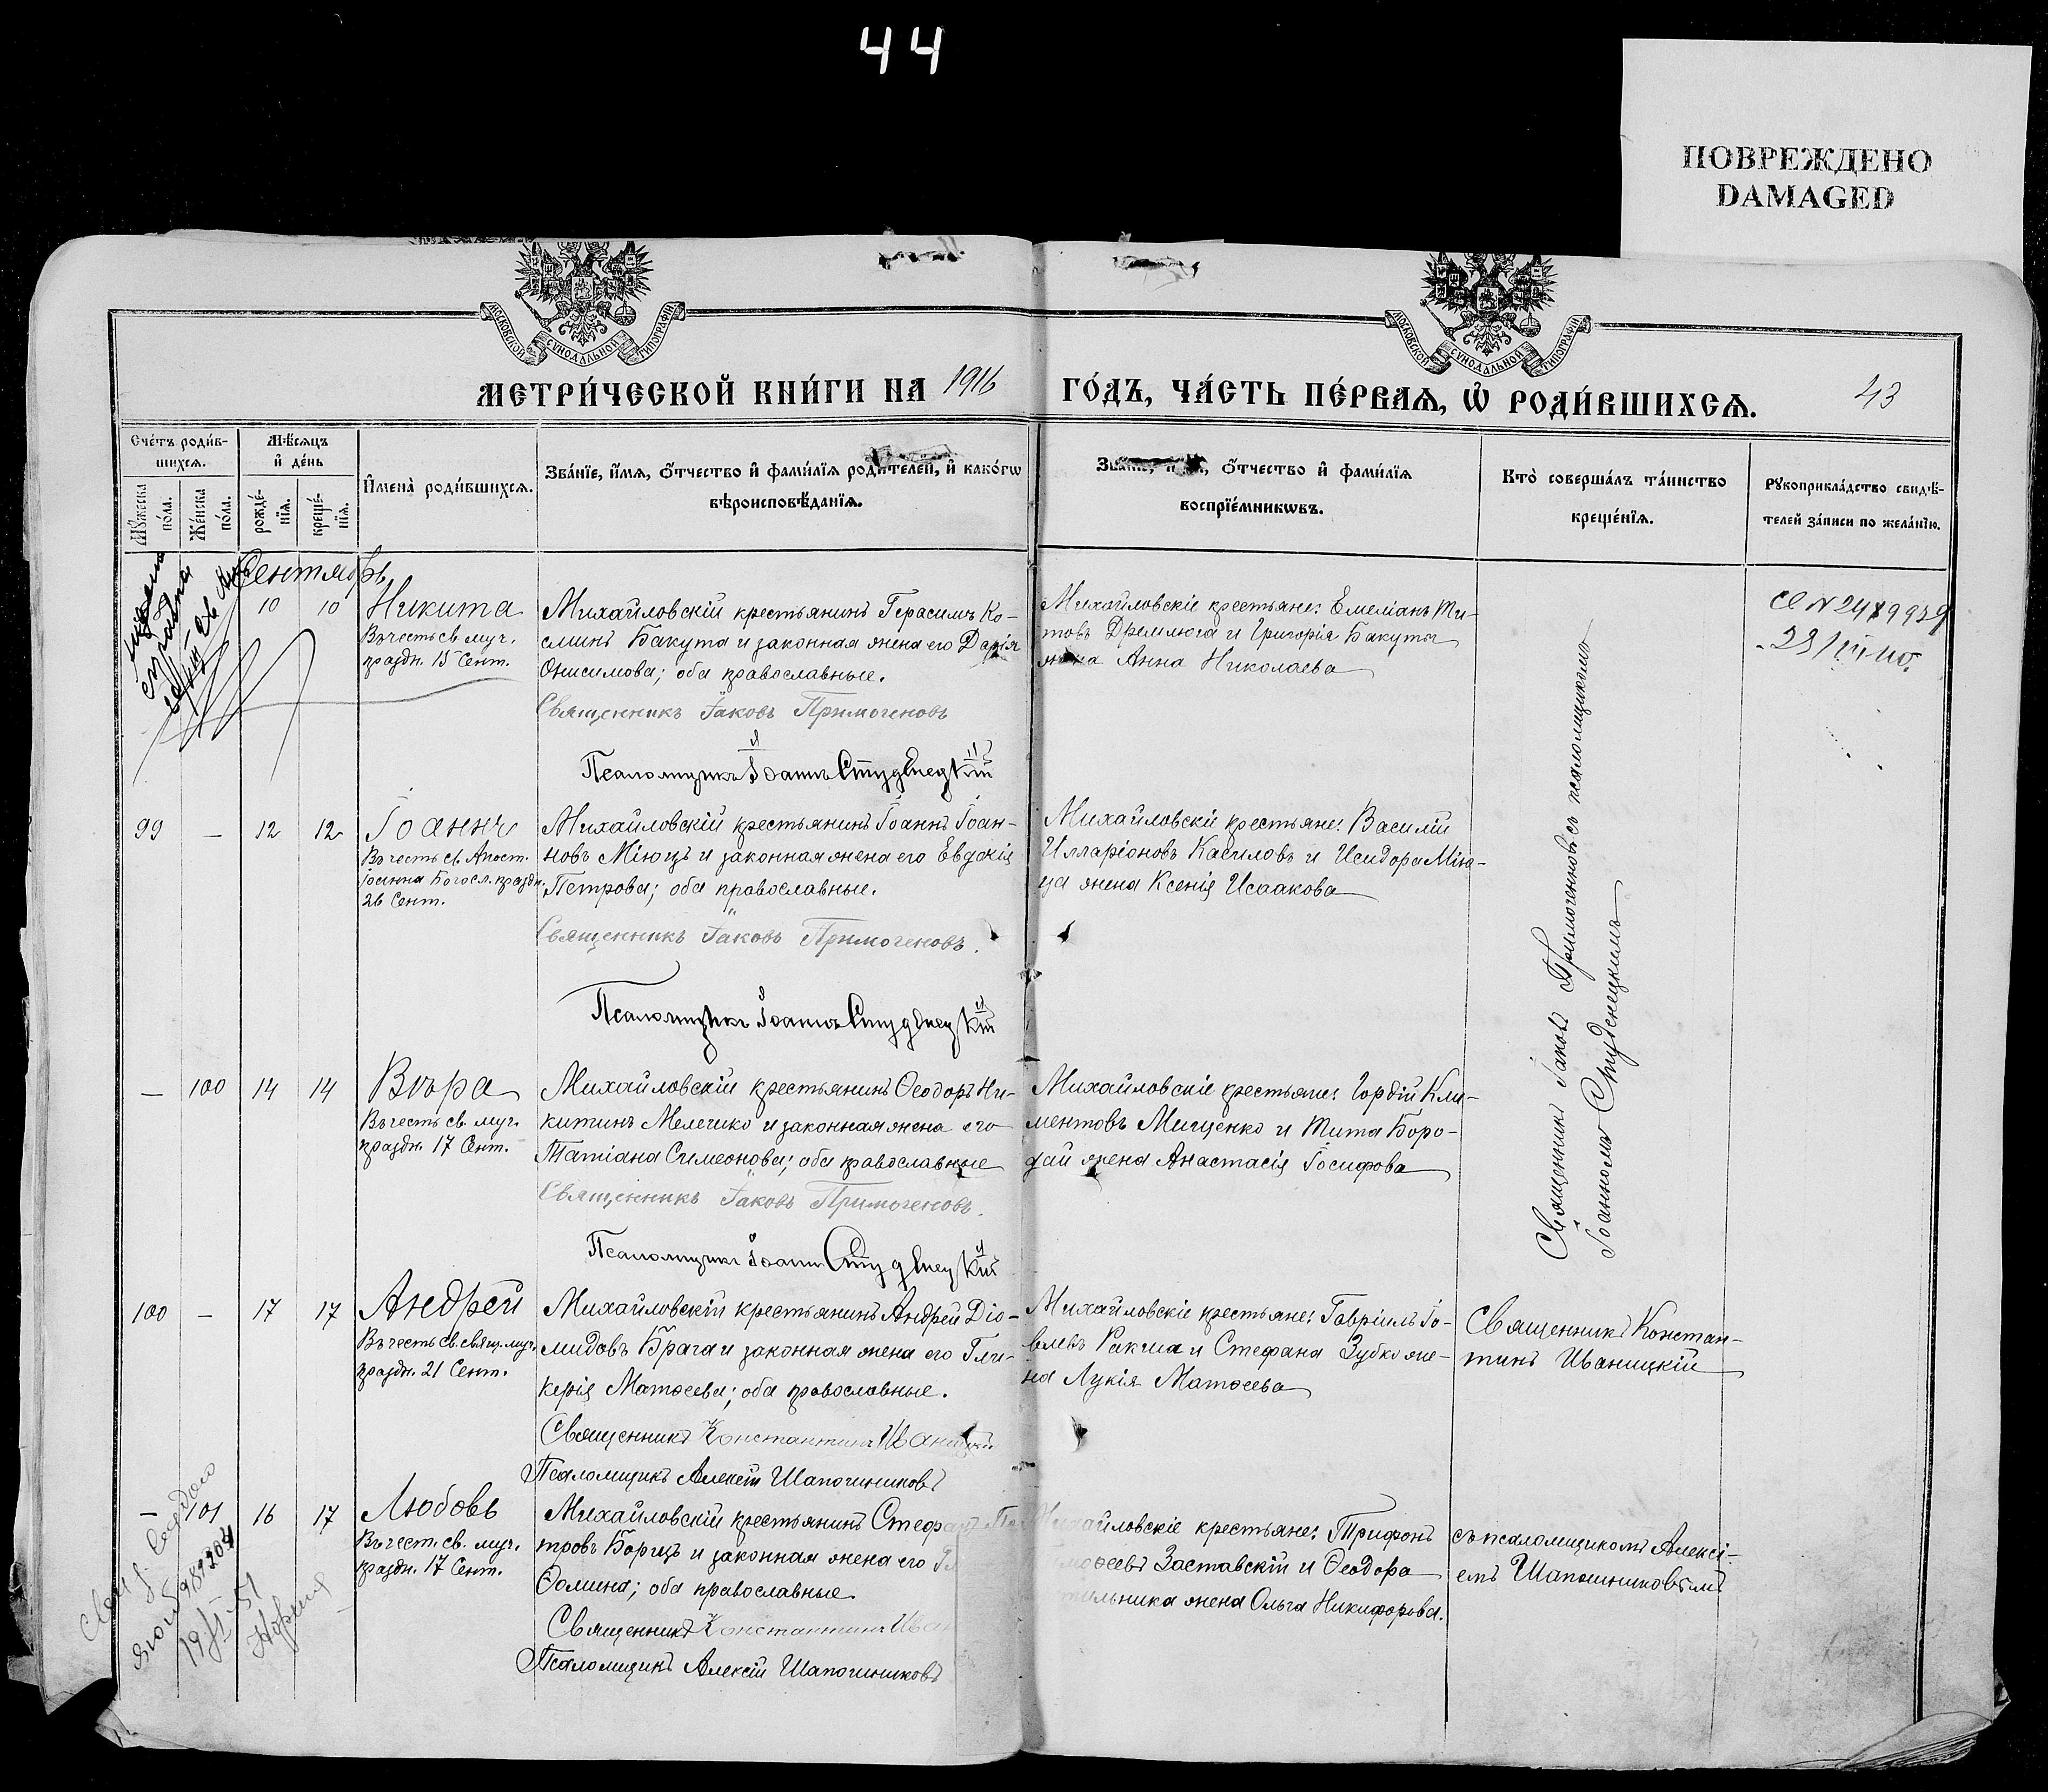 44
ПОВРЕЖДЕНО
DAMAGED
МОСКОВСКОЙ СѴНОДАЛЬНОЙ ТИПОГРАФІИ
МОСКОВСКОЙ СѴНОДАЛЬНОЙ ТИПОГРАФІИ
МЕТРИ́ЧЕСКОЙ КНИ́ГИ НА 1916 ГО́ДЪ, ЧА́СТЬ ПЕ́РВАѦ, Ѡ҆ РОДИ́ВШИХСѦ.
43
Сче́тъ роди́в-
шихсѧ.
Мѣ́сѧцъ
и҆ де́нь
Мꙋ́жеска
по́ла.
Же́нска
по́ла.
рожде́-
нїѧ.
креще́-
нїѧ.
И҆мена̀ роди́вшихсѧ.
Зва́нїе, и҆́мѧ, ѻ҆́тчество и҆ фами́лїѧ роди́телей, и҆ како́гѡ
вѣроисповѣ́данїѧ.
ѻ҆́тчество и҆ фами́лїѧ
воспрїе́мникѡвъ.
Кто̀ соверша́лъ та́инство
креще́нїѧ.
Рꙋкоприкла́дство свидѣ́-
телей за́писи по жела́нїю.
Сентябрь
10 10 Никита
Въ честь св. муч.
праздн. 15 Сент.
Михайловскій крестьянинъ Герасимъ Ко-
сминъ Бакута и законная жена его Дарія
Онисимова; оба православные.
Священникъ Іаковъ Примогеновъ
Псаломщикъ Іоаннъ Студенецкій
Михайловскіе крестьяне: Емеліанъ Ти-
товъ Дремлюга и Григорія Бакуты
жена Анна Николаева
99 — 12 12 Іоаннъ
Въ честь св. Апост.
Іоанна Богосл. праздн.
26 Сент.
Михайловскій крестьянинъ Іоаннъ Іоан-
новъ Міюцъ и законная жена его Евдокія
Петрова; оба православные.
Священникъ Іаковъ Примогеновъ.
Псаломщикъ Іоаннъ Студенецкій
Михайловскіе крестьяне: Василій
Илларіоновъ Касиловъ и Исидора Мію-
ца жена Ксенія Исаакова
Священникъ Іаковъ Примогеновъ съ псаломщикомъ
Іоанномъ Студенецкимъ
— 100 14 14 Вѣра
Въ честь св. муч.
праздн. 17 Сент.
Михайловскій крестьянинъ Ѳеодоръ Ни-
китинъ Мелечко и законная жена его
Татіана Симеонова; оба православные
Священникъ Іаковъ Примогеновъ.
Псаломщикъ Іоаннъ Студенецкій
Михайловскіе крестьяне: Гордій Кли-
ментовъ Мищенко и Тита Боро-
дай жена Анастасія Іосифова
100 — 17 17 Андрей
Въ честь св. свящ. муч.
праздн. 21 Сент.
Михайловскій крестьянинъ Андрей Діо-
мидовъ Брага и законная жена его Гли-
керія Матѳеева; оба православные.
Священникъ Константинъ Иваницкій
Псаломщикъ Алексій Шапошниковъ
Михайловскіе крестьяне: Гавріилъ Іо-
влевъ Ракша и Стефана Зубко же-
на Лукія Матѳеева
Священникъ Констан-
тинъ Иваницкій
— 101 16 17 Любовь
Въ чест. св. муч.
праздн. 17 Сент.
Михайловскій крестьянинъ Стефанъ Пе
тровъ Борецъ и законная жена его Гл
Ѳомина; оба православные
Священникъ Константинъ Иван
Псаломщикъ Алексій Шапошниковъ
Михайловскіе крестьяне: Трифонъ
Заставскій и Ѳеодора
жена Ольга Никифорова.
съ псаломщикомъ Алексі-
емъ Шапошниковымъ